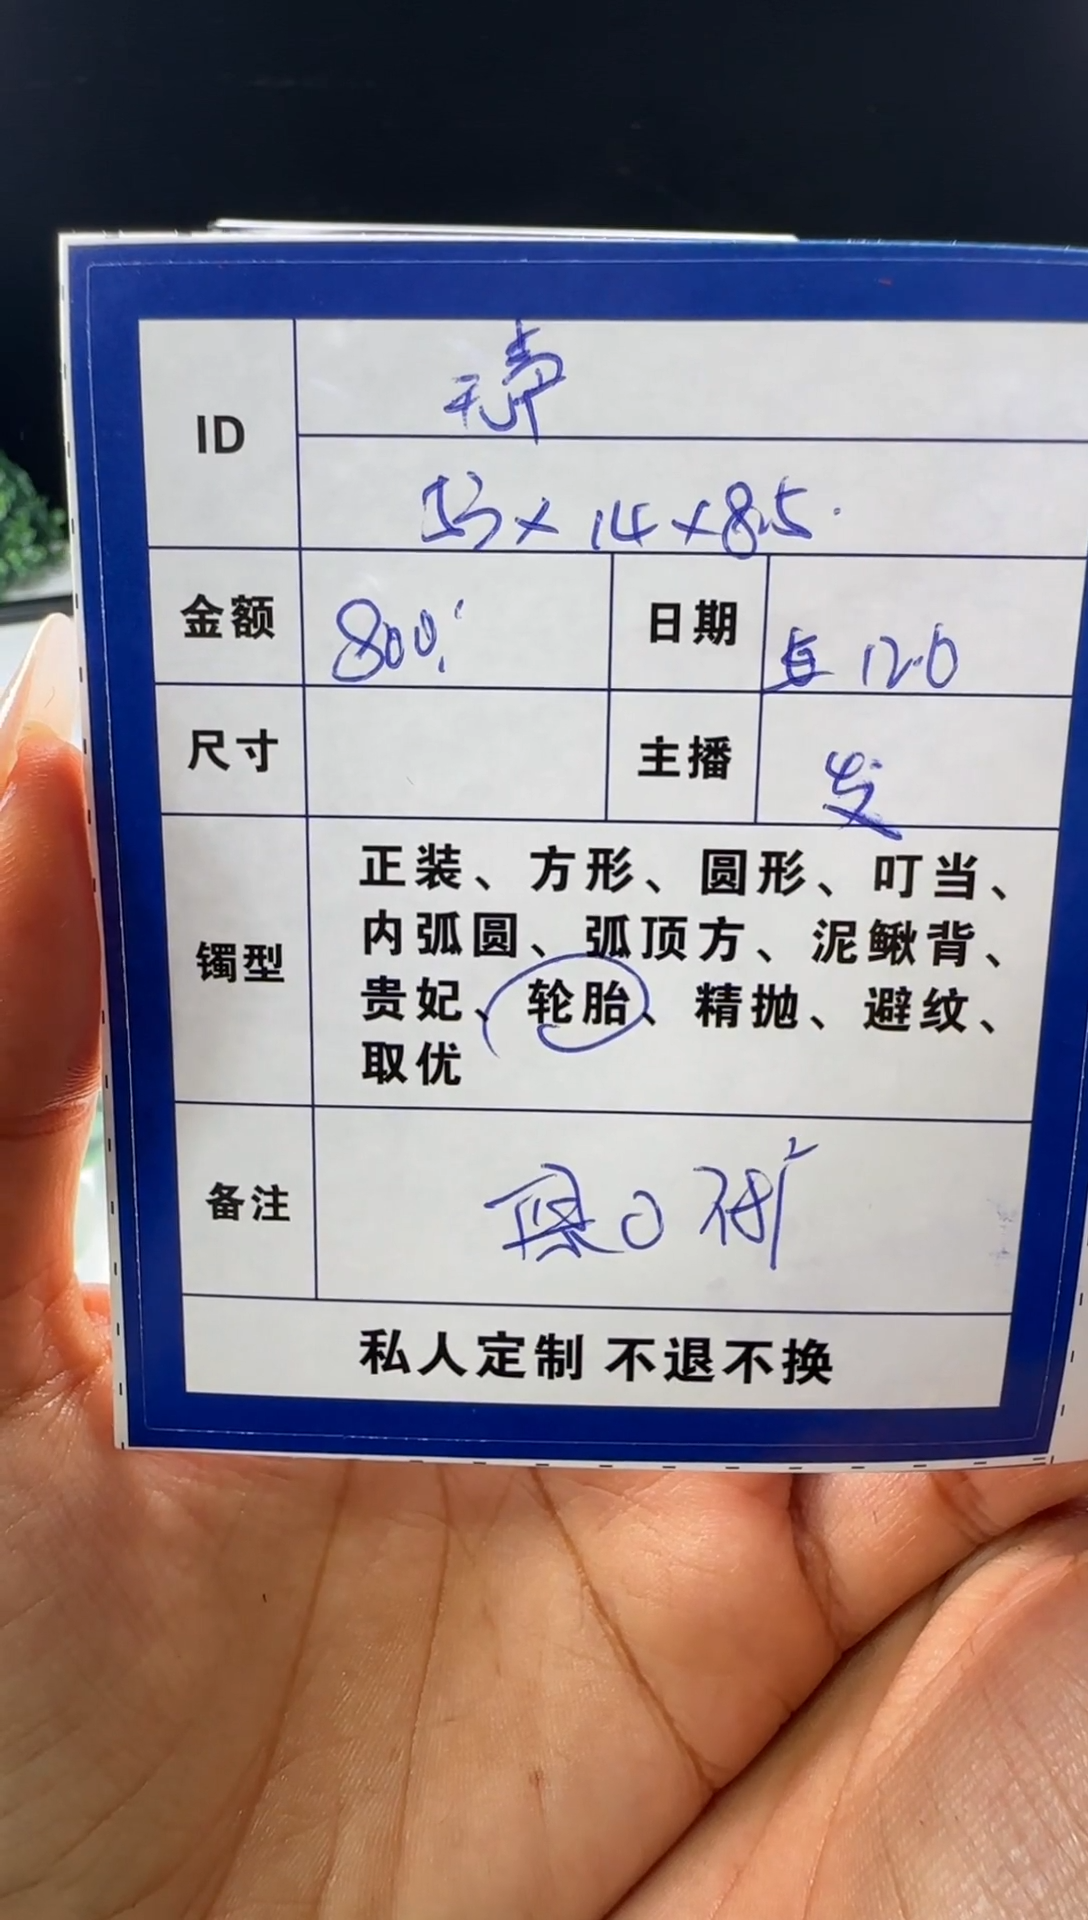 ID 无声
53×14×8.5
金额 800 日期 12.0
尺寸 主播
镯型 正装、方形、圆形、叮当、
内弧圆、弧顶方、泥鳅背、
贵妃、轮胎、精抛、避纹、
取优
备注
私人定制 不退不换